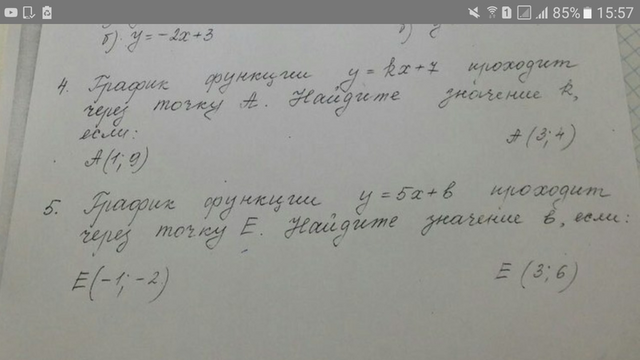 85% 15:57
б) y = -2x+3
4. График функции y = kx+7 проходит
через точку A. Найдите значение k,
если:
A(1; 9)
A(3; 4)
5. График функции y = 5x+b проходит
через точку E. Найдите значение b, если:
E(-1; -2)
E(3; 6)